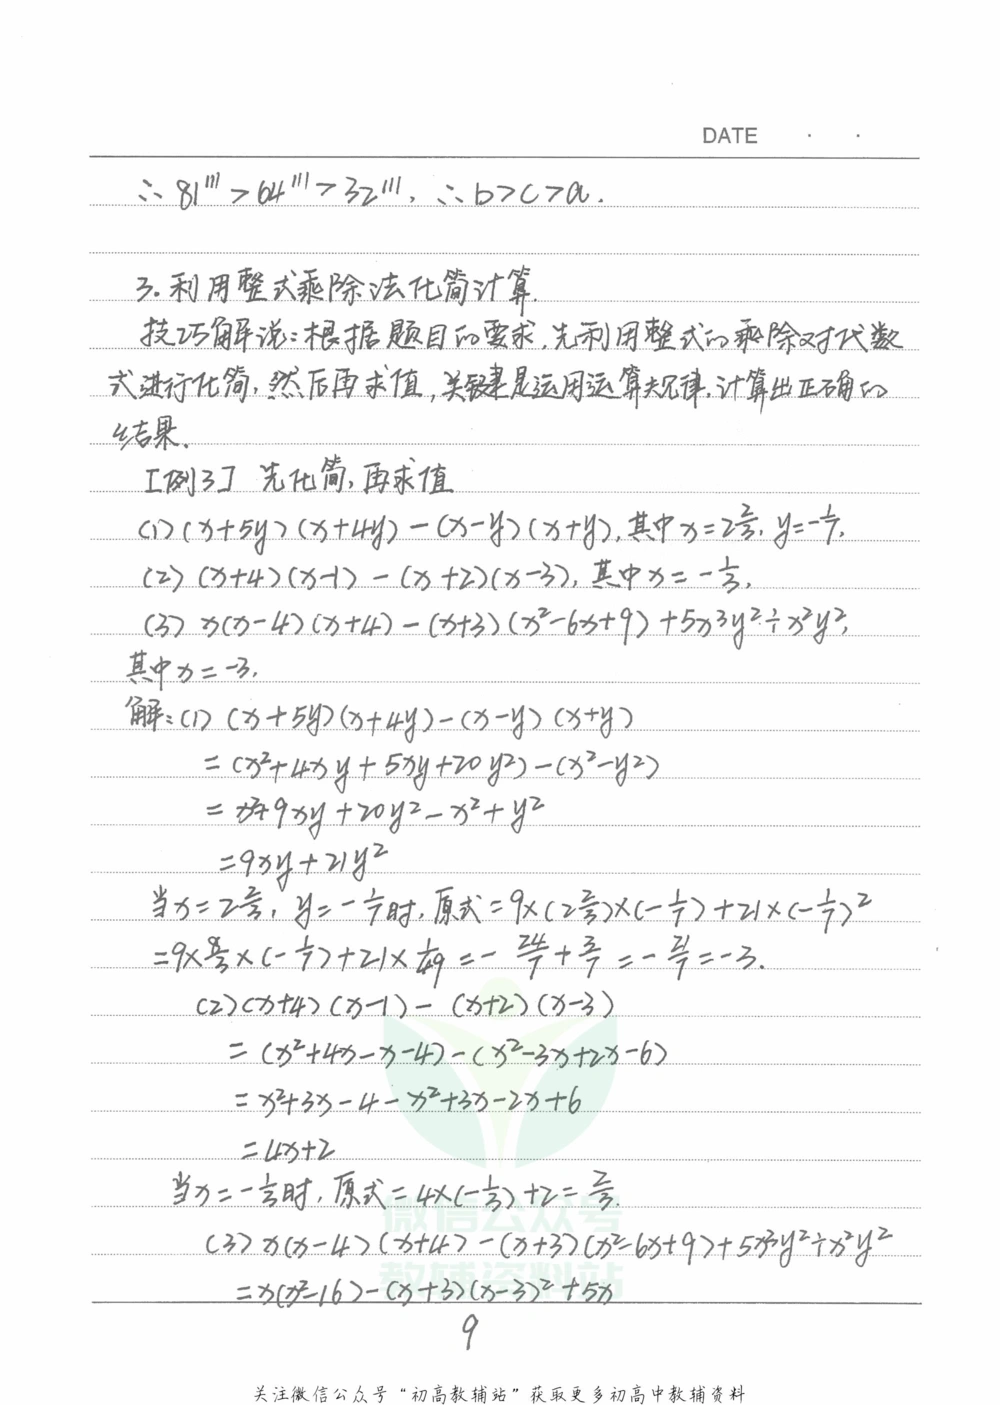 DATE · ·
∴ 81¹¹¹ > 64¹¹¹ > 32¹¹¹, ∴ b > c > a.
3. 利用整式乘除法化简计算.
技巧解说: 根据题目的要求, 先利用整式的乘除对代数
式进行化简, 然后再求值, 关键是运用运算规律, 计算出正确的
结果.
[例3] 先化简, 再求值
(1) (x+5y)(x+4y)-(x-y)(x+y), 其中x=2⅔, y=-1/7,
(2) (x+4)(x-1)-(x+2)(x-3), 其中x=-1/3,
(3) x(x-4)(x+4)-(x+3)(x²-6x+9)+5x³y²÷x²y²,
其中x=-3.
解: (1) (x+5y)(x+4y)-(x-y)(x+y)
=(x²+4xy+5xy+20y²)-(x²-y²)
=x²+9xy+20y²-x²+y²
=9xy+21y²
当x=2⅔, y=-1/7时, 原式=9×(2⅔)×(-1/7)+21×(-1/7)²
=9×8/3×(-1/7)+21×1/49=-24/7+3/7=-21/7=-3.
(2) (x+4)(x-1)-(x+2)(x-3)
=(x²+4x-x-4)-(x²-3x+2x-6)
=x²+3x-4-x²+3x-2x+6
=4x+2
当x=-1/3时, 原式=4×(-1/3)+2=2/3.
(3) x(x-4)(x+4)-(x+3)(x²-6x+9)+5x³y²÷x²y²
=x(x²-16)-(x+3)(x-3)²+5x
9
微信公众号
教辅资料站
关注微信公众号“初高教辅站”获取更多初高中教辅资料